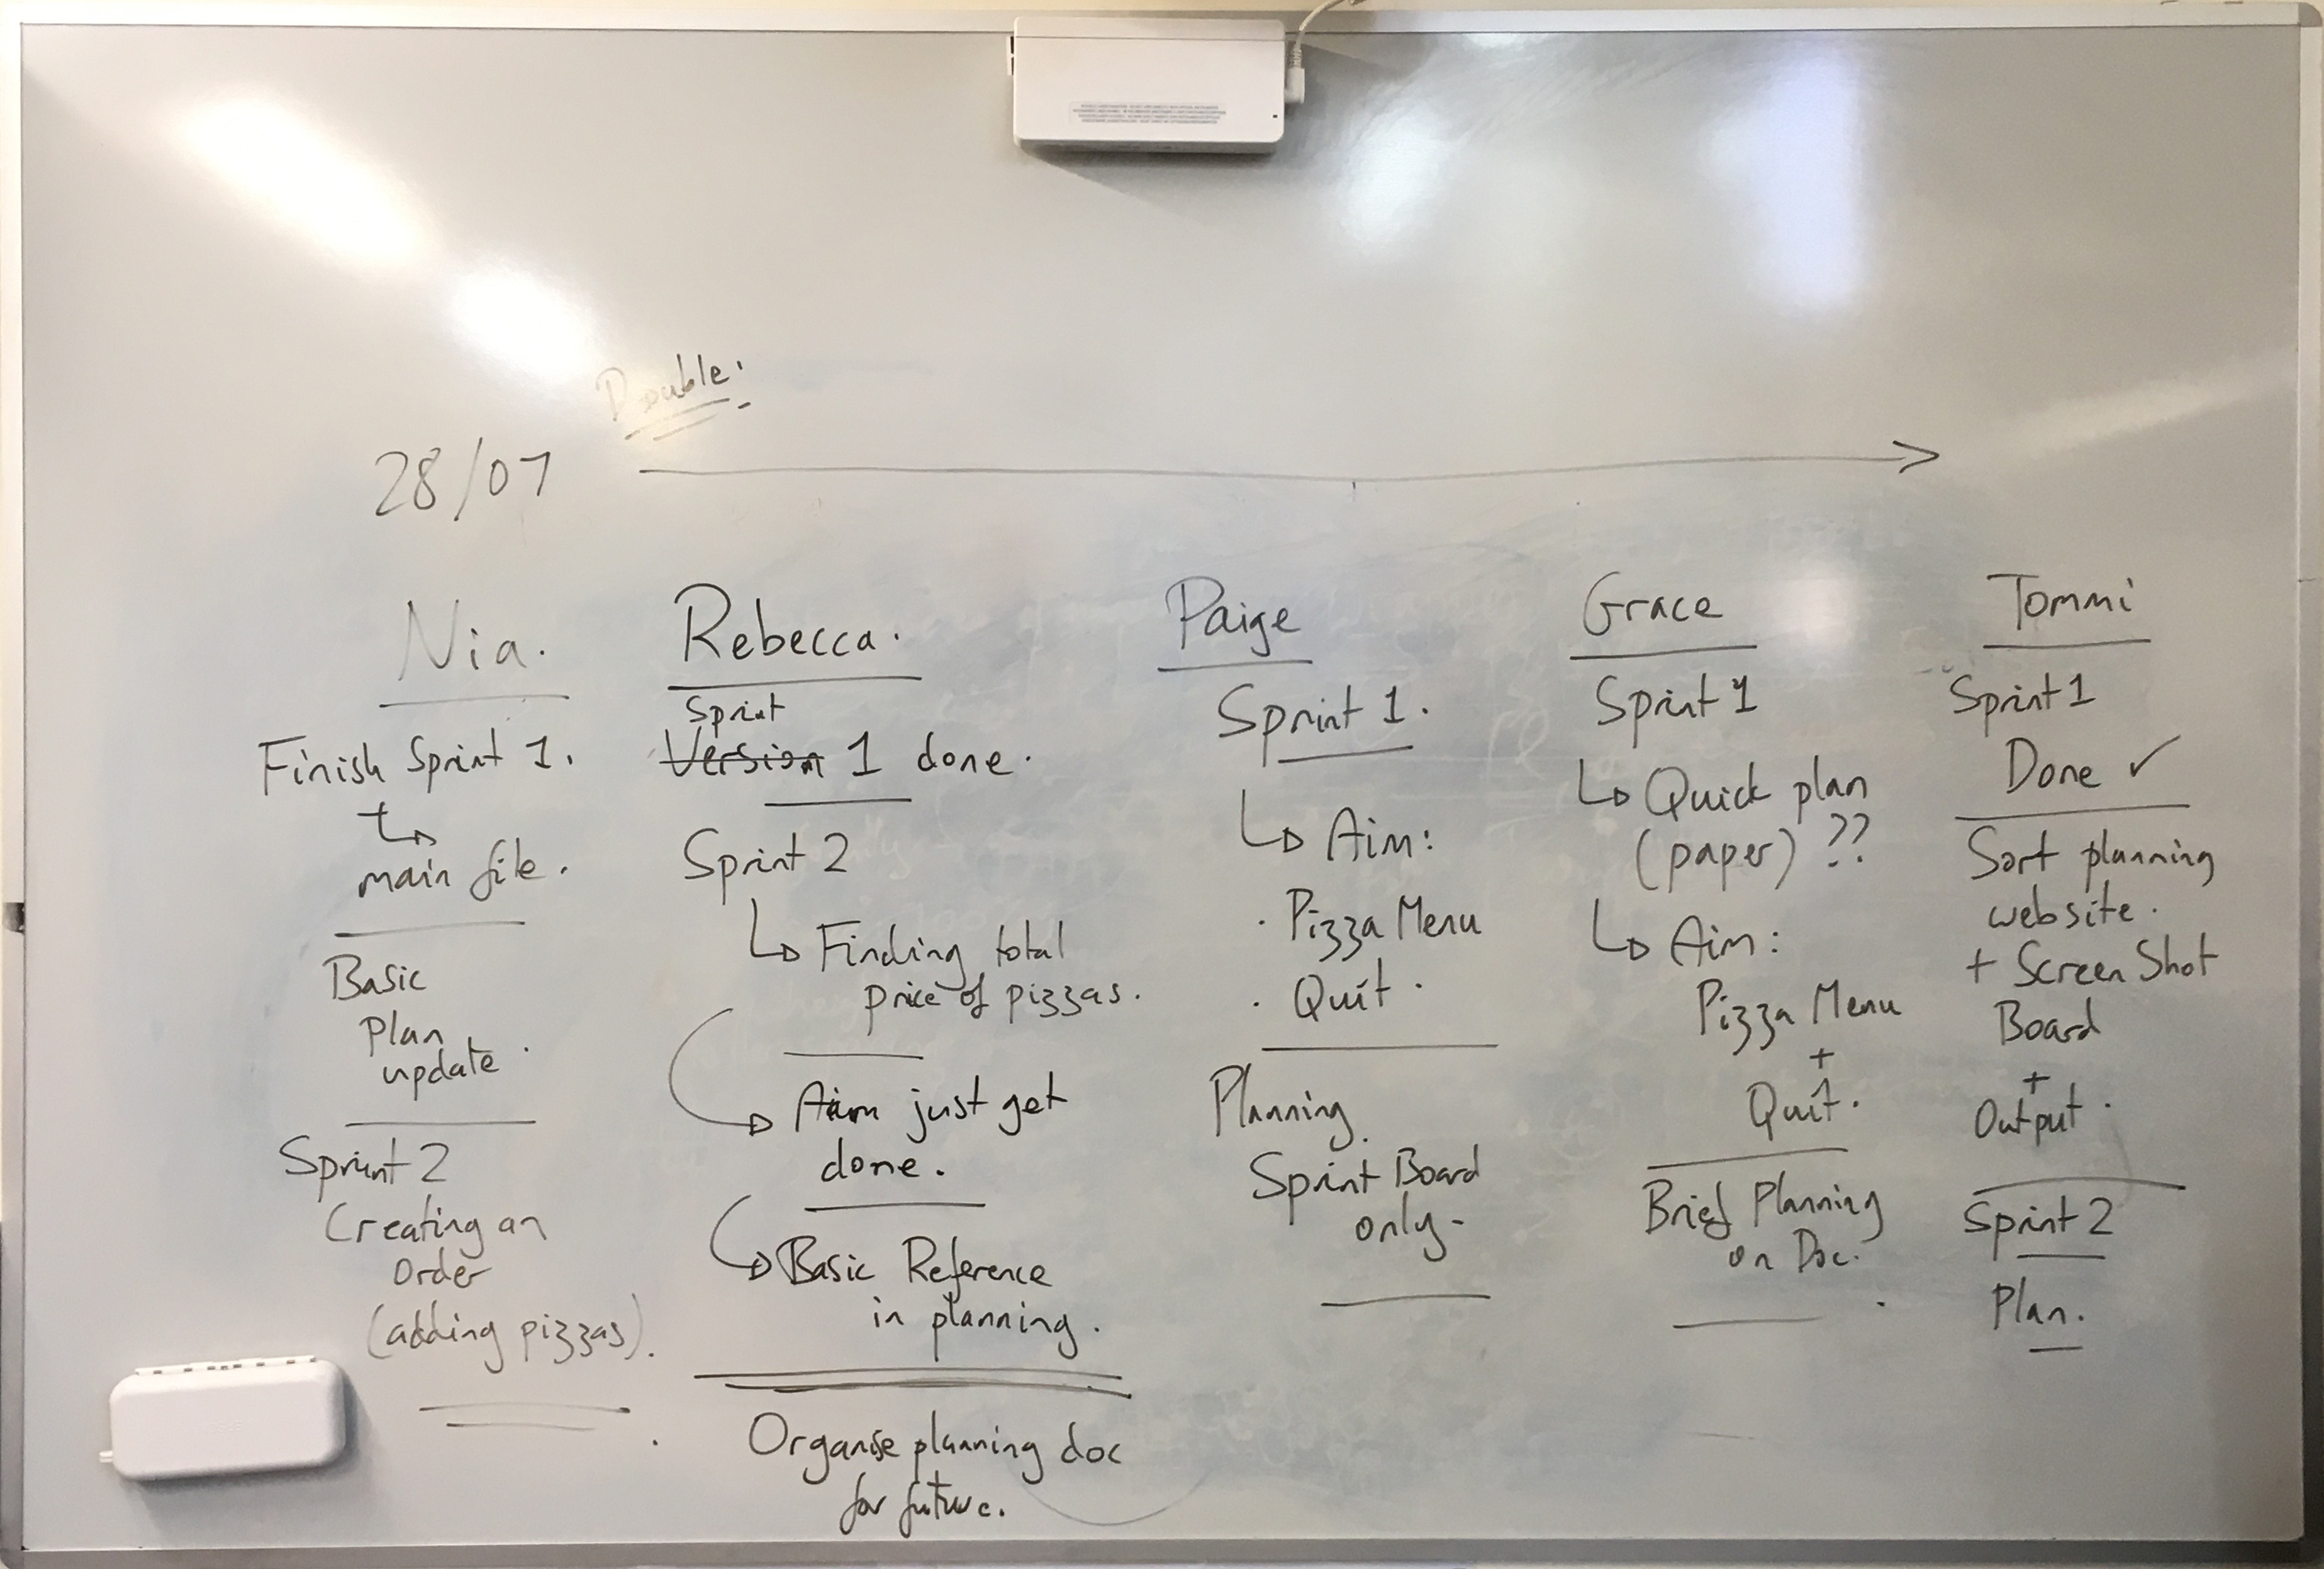 Double:
28/07
Nia.
Finish Sprint 1.
main file.
Basic
Plan
update.
Sprint 2
Creating an
order
(adding pizzas).
Rebecca.
Sprint
Version 1 done.
Sprint 2
Finding total
price of pizzas.
Aim just get
done.
Basic Reference
in planning.
Organise planning doc
for future.
Paige
Sprint 1.
Aim:
· Pizza Menu
· Quit.
Planning
Sprint Board
only-
Grace
Sprint 1
Quick plan
(paper) ??
Aim:
Pizza Menu
+
Quit.
Brief Planning
on Doc.
Tommi
Sprint 1
Done ✓
Sort planning
website.
+ Screen Shot
Board
+
Output.
Sprint 2
Plan.